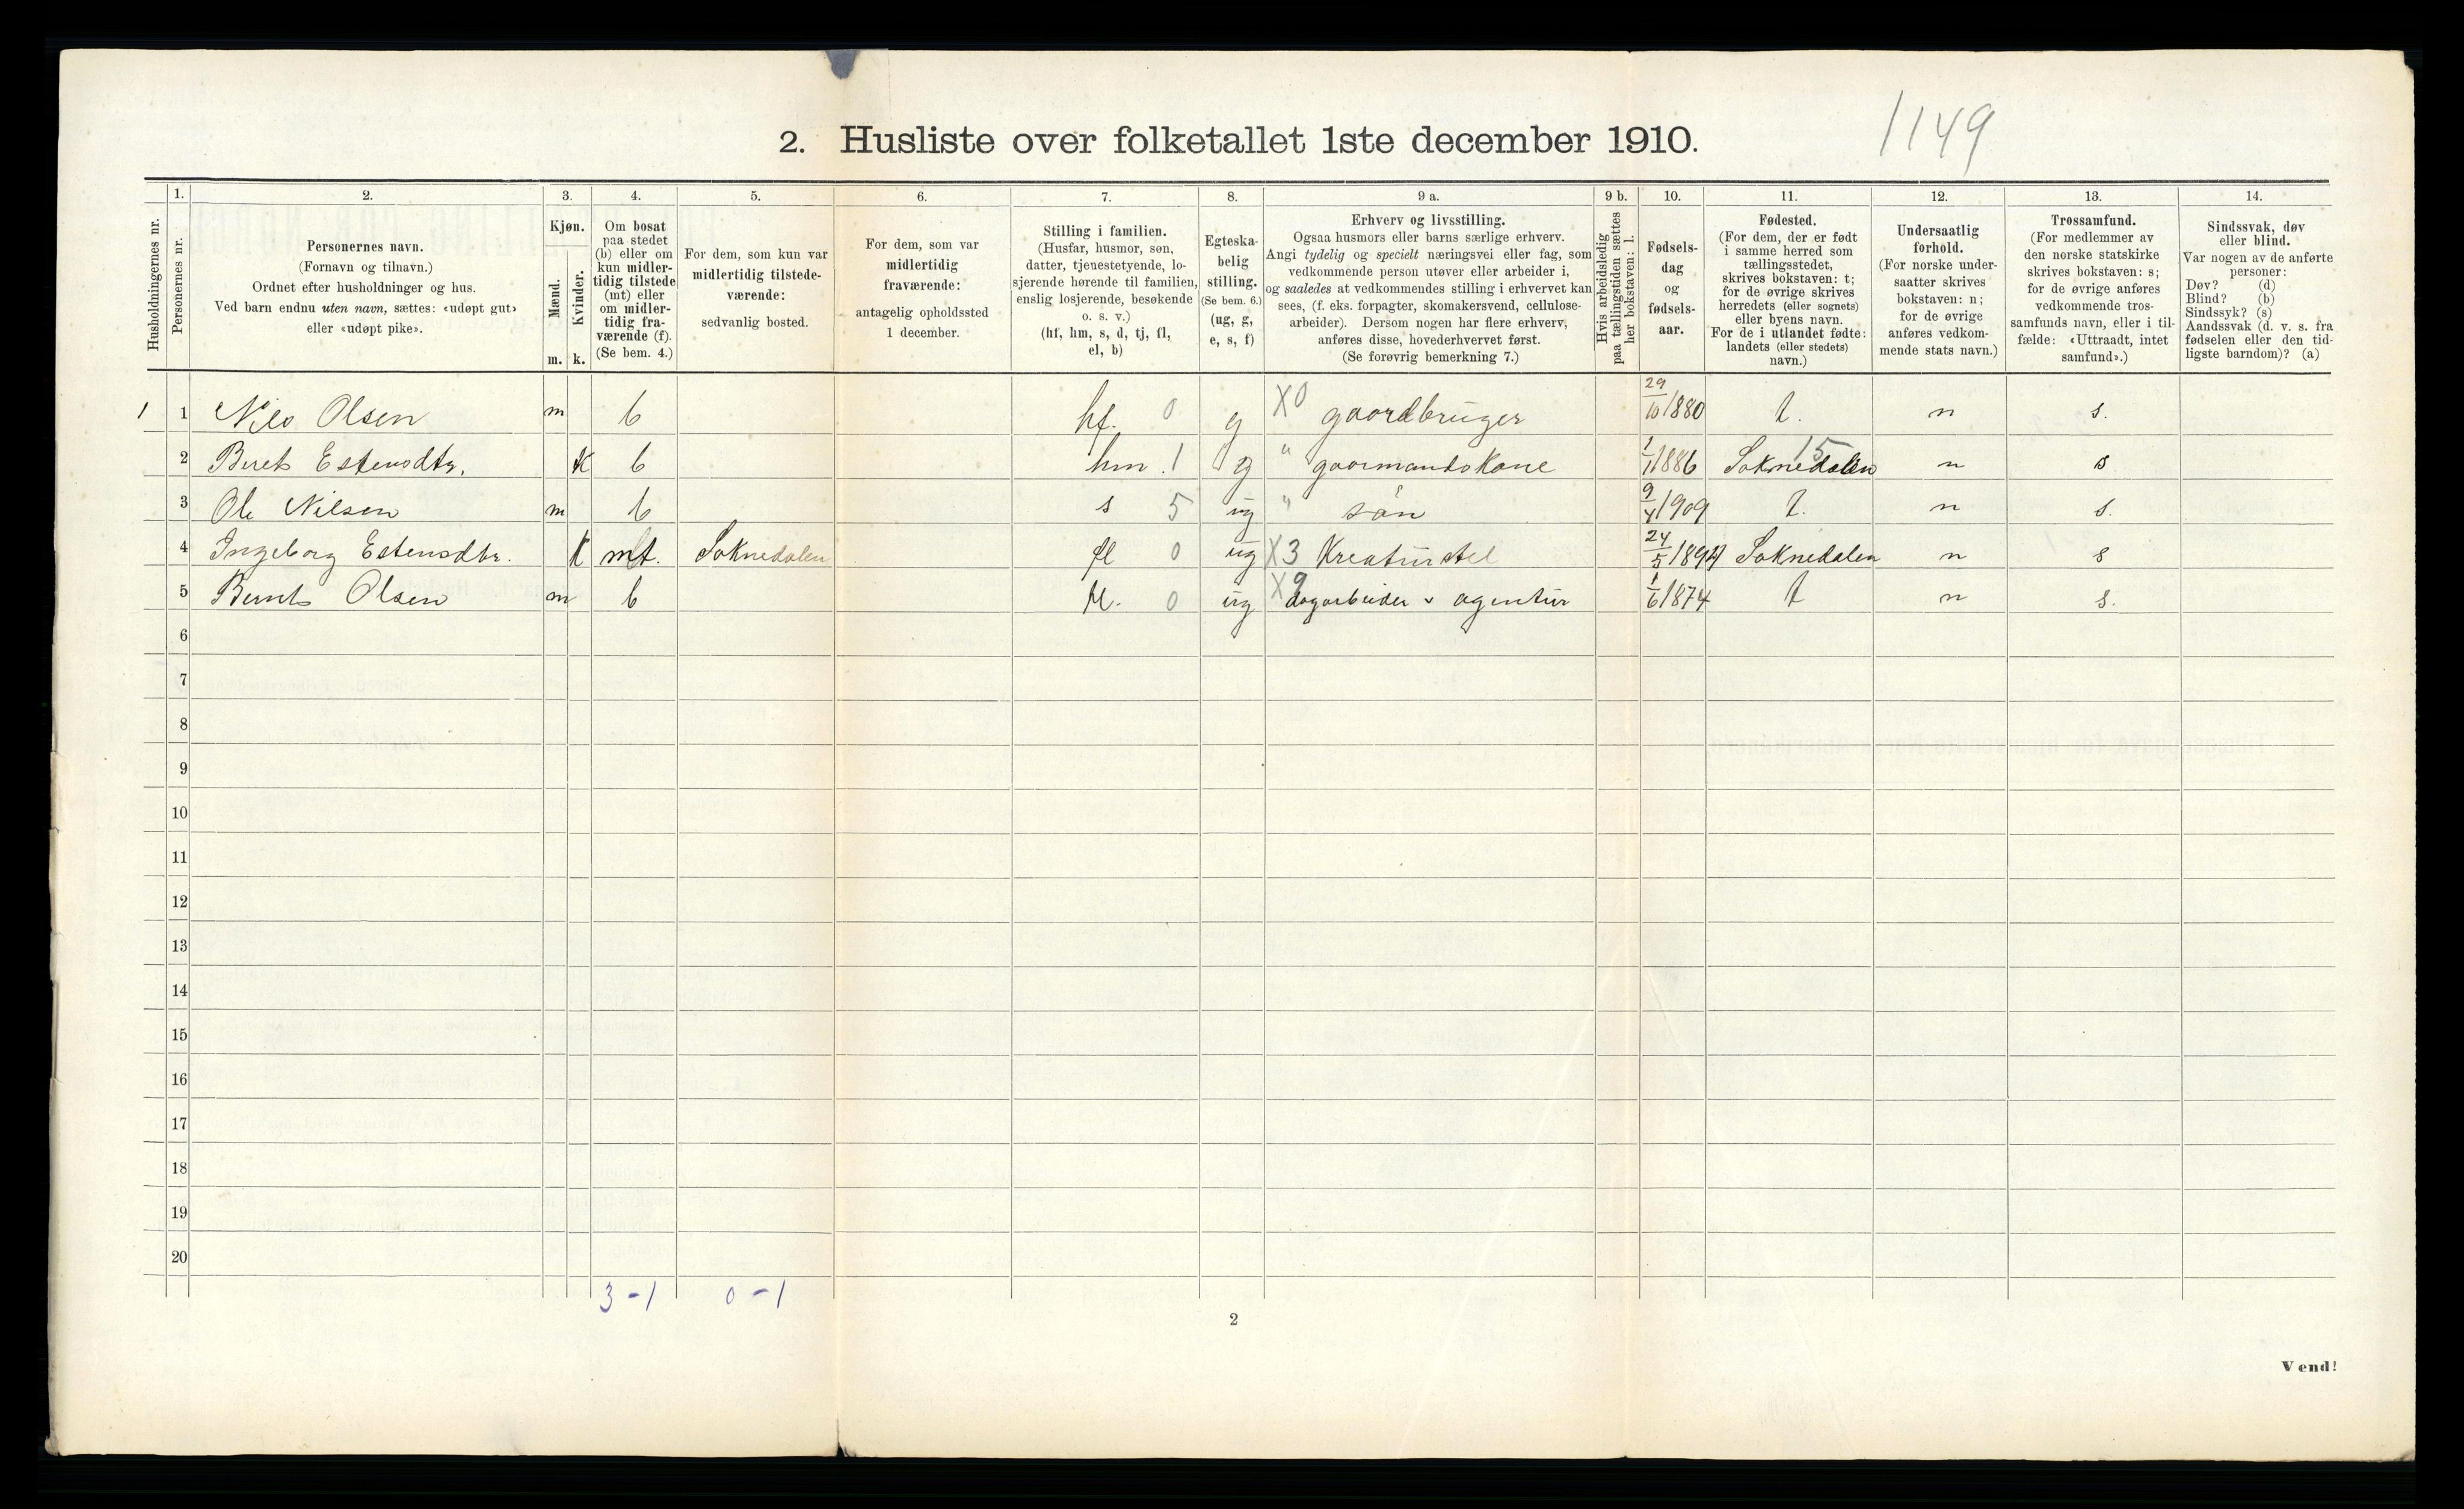 1149
2. Husliste over folketallet 1ste december 1910.
1. 2. 3. 4. 5. 6. 7. 8. 9 a. 9 b. 10. 11. 12. 13. 14.
Husholdningernes nr.
Personernes nr.
Personernes navn.
(Fornavn og tilnavn.)
Ordnet efter husholdninger og hus.
Ved barn endnu uten navn, sættes: «udøpt gut»
eller «udøpt pike».
Kjøn.
Mænd.
Kvinder.
m. k.
Om bosat
paa stedet
(b) eller om
kun midler-
tidig tilstede
(mt) eller
om midler-
tidig fra-
værende (f).
(Se bem. 4.)
For dem, som kun var
midlertidig tilstede-
værende:
sedvanlig bosted.
For dem, som var
midlertidig
fraværende:
antagelig opholdssted
1 december.
Stilling i familien.
(Husfar, husmor, søn,
datter, tjenestetyende, lo-
sjerende hørende til familien,
enslig losjerende, besøkende
o. s. v.)
(hf, hm, s, d, tj, fl,
el, b)
Egteska-
belig
stilling.
(Se bem. 6.)
(ug, g,
e, s, f)
Erhverv og livsstilling.
Ogsaa husmors eller barns særlige erhverv.
Angi tydelig og specielt næringsvei eller fag, som
vedkommende person utøver eller arbeider i,
og saaledes at vedkommendes stilling i erhvervet kan
sees, (f. eks. forpagter, skomakersvend, cellulose-
arbeider). Dersom nogen har flere erhverv,
anføres disse, hovederhvervet først.
(Se forøvrig bemerkning 7.)
Hvis arbeidsledig
paa tællingstiden sættes
her bokstaven: l.
Fødsels-
dag
og
fødsels-
aar.
Fødested.
(For dem, der er født
i samme herred som
tællingsstedet,
skrives bokstaven: t;
for de øvrige skrives
herredets (eller sognets)
eller byens navn.
For de i utlandet fødte:
landets (eller stedets)
navn.)
Undersaatlig
forhold.
(For norske under-
saatter skrives
bokstaven: n;
for de øvrige
anføres vedkom-
mende stats navn.)
Trossamfund.
(For medlemmer av
den norske statskirke
skrives bokstaven: s;
for de øvrige anføres
vedkommende tros-
samfunds navn, eller i til-
fælde: «Uttraadt, intet
samfund».)
Sindssvak, døv
eller blind.
Var nogen av de anførte
personer:
Døv? (d)
Blind? (b)
Sindssyk? (s)
Aandssvak (d. v. s. fra
fødselen eller den tid-
ligste barndom)? (a)
1 1 Nils Olsen m b hf. 0 g X0 gaardbruger 29/10 1880 t. n s.
2 Beret Estensdtr. K b hm. 1 g " gaarmandskone 1/1 1886 Soknedalen 15 n s
3 Ole Nilsen m b s 5 ug " søn 9/4 1909 t. n s.
4 Ingeborg Estensdtr. K mt. Soknedalen fl 0 ug X3 Kreaturstel 24/5 1894 Soknedalen n s
5 Bernt Olsen m b fl. 0 ug X9 dagarbeider & agentur 1/6 1874 t n s.
6
7
8
9
10
11
12
13
14
15
16
17
18
19
20
3-1 0-1
2
Vend!